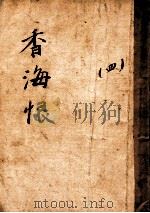 香海恨
(四)